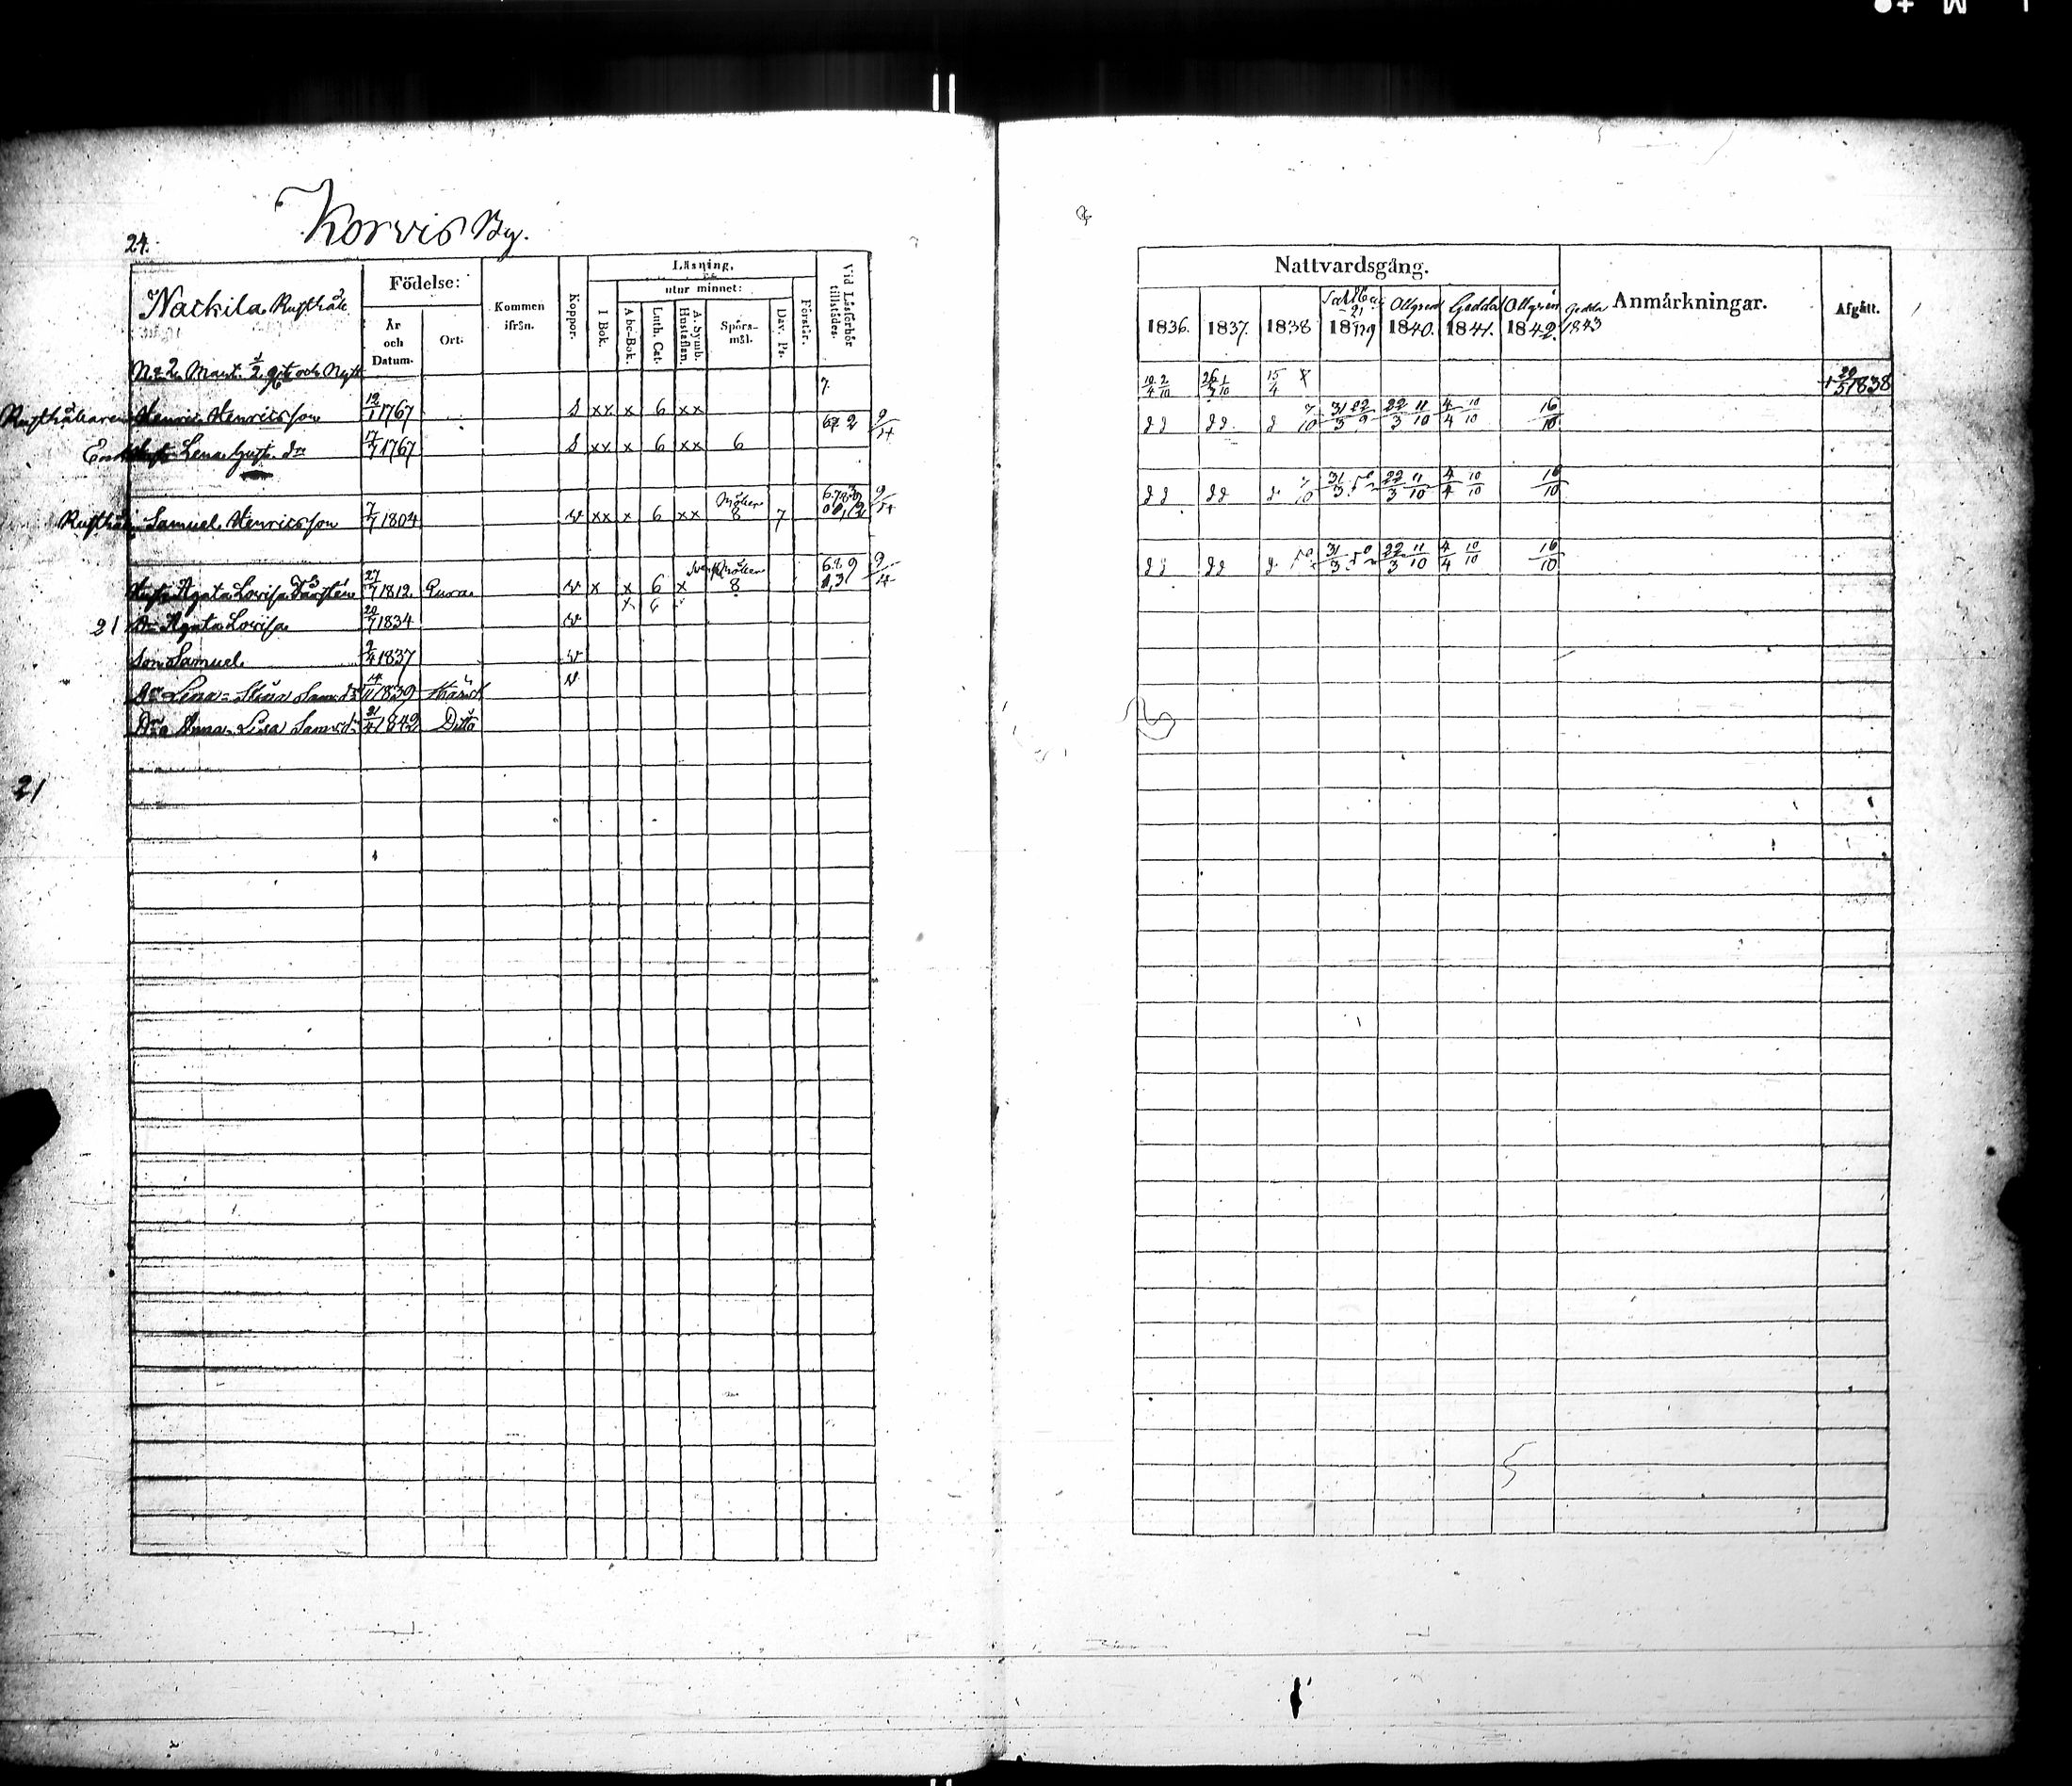 24.
Korvis By.
Nackila Rusthåll
Födelse:
År och Datum.
Ort.
Kommen ifrån.
Koppor.
Läsning,
utur minnet:
I Bok.
Abc-Bok.
Luth. Cat.
Hustaflan.
A. Symb.
Spörsmål.
Dav. Ps.
Förstår.
Vid Läsförhör tillstädes.
No 2 Mant. 1/2
7.
Rusthållaren Henric Henricsson 12/1 1767 S xx x 6 xx
2 9/4
Enk Lena Gust. dr 17/7 1767 S xx x 6 xx 6
Rusthåll Samuel Henricsson 7/7 1804 v xx x 6 xx 8 7 9/4
Hust. Agata Lovisa 27/7 1812 Pura v x x 6 x 8 9/4
x 6
21 Dr Agata Lovisa 20/7 1834 v
Son Samuel 9/4 1837 v
Dr Lena Stina Sams dr 14/11 1839 v
Dr Anna Lisa Sams dr 21/4 1842 Ditto
21
Nattvardsgång.
Anmärkningar.
Afgått.
1836.
1837.
1838
21
1839
Ollgren
1840.
Gedda
1841.
Ollgren
1842.
Gedda
1843
10/4 2/10 26/3 1/10 15/4 + 20/5 1838
31/3 22/9 22/3 11/10 4/4 10/10 16/10
31/3 22/3 11/10 4/4 10/10 16/10
31/3 22/3 11/10 4/4 10/10 16/10